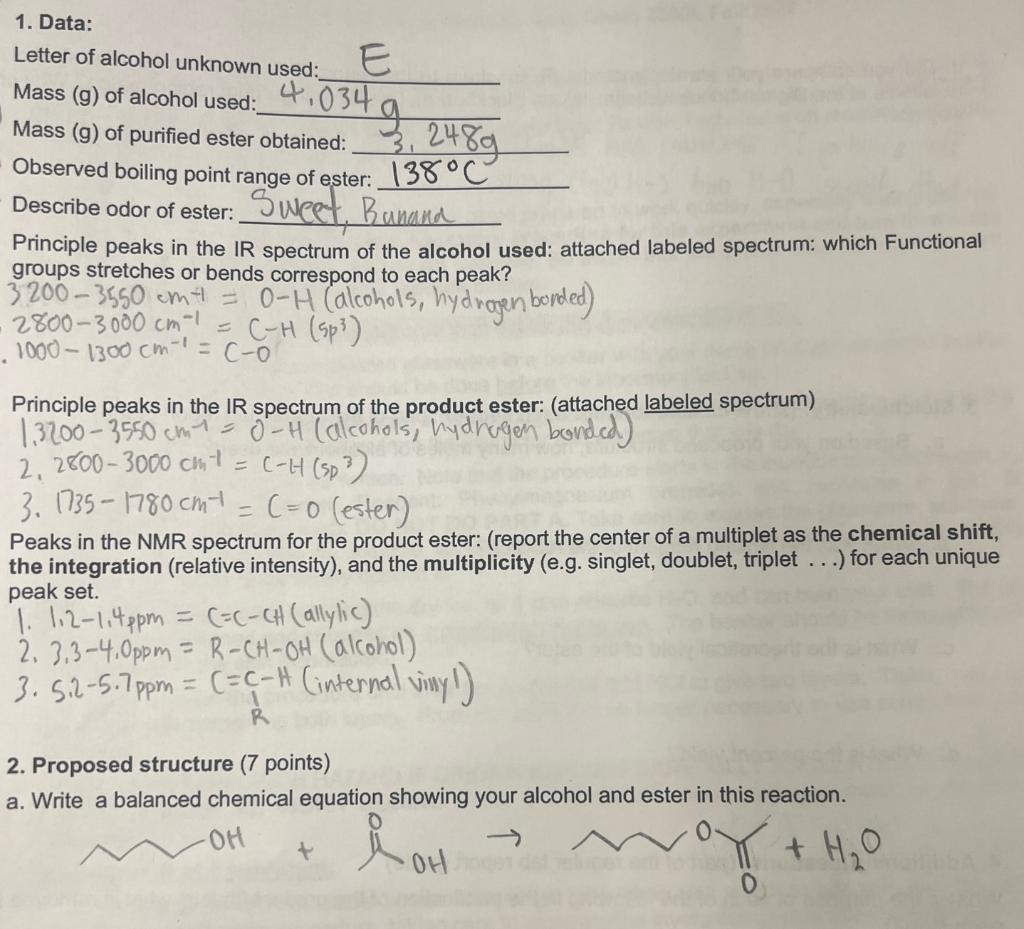 1. Data:
Letter of alcohol unknown used: E
Mass (g) of alcohol used: 4.034 g
Mass (g) of purified ester obtained: 3.248g
Observed boiling point range of ester: 138°C
Describe odor of ester: Sweet, Banana
Principle peaks in the IR spectrum of the alcohol used: attached labeled spectrum: which Functional
groups stretches or bends correspond to each peak?
3200-3550 cm-1 = O-H (alcohols, hydrogen bonded)
2800-3000 cm-1 = C-H (sp3)
1000-1300 cm-1 = C-O
Principle peaks in the IR spectrum of the product ester: (attached labeled spectrum)
1. 3200-3550 cm-1 = O-H (alcohols, hydrogen bonded)
2. 2800-3000 cm-1 = C-H (sp3)
3. 1735-1780 cm-1 = C=O (ester)
Peaks in the NMR spectrum for the product ester: (report the center of a multiplet as the chemical shift,
the integration (relative intensity), and the multiplicity (e.g. singlet, doublet, triplet . . .) for each unique
peak set.
1. 1.2-1.4ppm = C=C-CH (allylic)
2. 3.3-4.0ppm = R-CH-OH (alcohol)
3. 5.2-5.7ppm = C=C-H (internal vinyl)
R
2. Proposed structure (7 points)
a. Write a balanced chemical equation showing your alcohol and ester in this reaction.
OH + O OH → O O + H2O